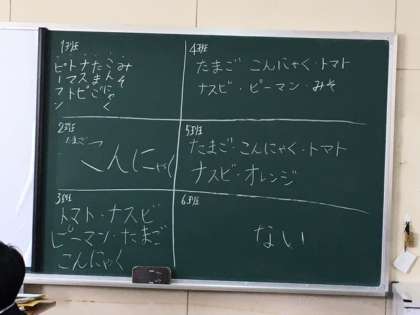 1班
ピーマン
トマト
ナスビ
たまご
こんにゃく
みそ
2班
たまご
こんにゃく
3班
トマト・ナスビ
ピーマン・たまご
こんにゃく
4班
たまご・こんにゃく・トマト
ナスビ・ピーマン・みそ
5班
たまご・こんにゃく・トマト
ナスビ・オレンジ
6班
ない